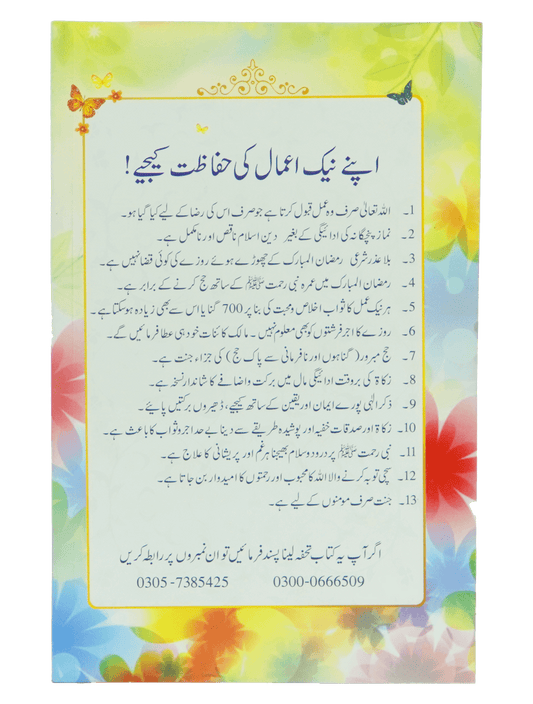 اپنے نیک اعمال کی حفاظت کیجیے!
1۔ اللہ تعالیٰ صرف وہ عمل قبول کرتا ہے جو صرف اس کی رضا کے لیے کیا گیا ہو۔
2۔ نماز پنجگانہ کی ادائیگی کے بغیر دین اسلام ناقص اور نامکمل ہے۔
3۔ بلا عذر شرعی رمضان المبارک کے چھوڑے ہوئے روزے کی کوئی قضا نہیں ہے۔
4۔ رمضان المبارک میں عمرہ نبی رحمت ﷺ کے ساتھ حج کرنے کے برابر ہے۔
5۔ ہر نیک عمل کا ثواب اخلاص و محبت کی بنا پر 700 گنا یا اس سے بھی زیادہ ہوسکتا ہے۔
6۔ روزے کا اجر فرشتوں کو بھی معلوم نہیں۔ مالک کائنات خود ہی عطا فرمائیں گے۔
7۔ حج مبرور (گناہوں اور نافرمانی سے پاک حج) کی جزاء جنت ہے۔
8۔ زکاۃ کی بروقت ادائیگی مال میں برکت و اضافے کا شاندار نسخہ ہے۔
9۔ ذکر الٰہی پورے ایمان اور یقین کے ساتھ کیجیے، ڈھیروں برکتیں پایئے۔
10۔ زکاۃ اور صدقات خفیہ اور پوشیدہ طریقے سے دینا بے حد اجر و ثواب کا باعث ہے۔
11۔ نبی رحمت ﷺ پر درود و سلام بھیجنا ہر غم اور پریشانی کا علاج ہے۔
12۔ سچی توبہ کرنے والا اللہ کا محبوب اور رحمتوں کا امیدوار بن جاتا ہے۔
13۔ جنت صرف مومنوں کے لیے ہے۔
اگر آپ یہ کتاب تحفہ لینا پسند فرمائیں تو ان نمبروں پر رابطہ کریں
0300-0666509 0305-7385425